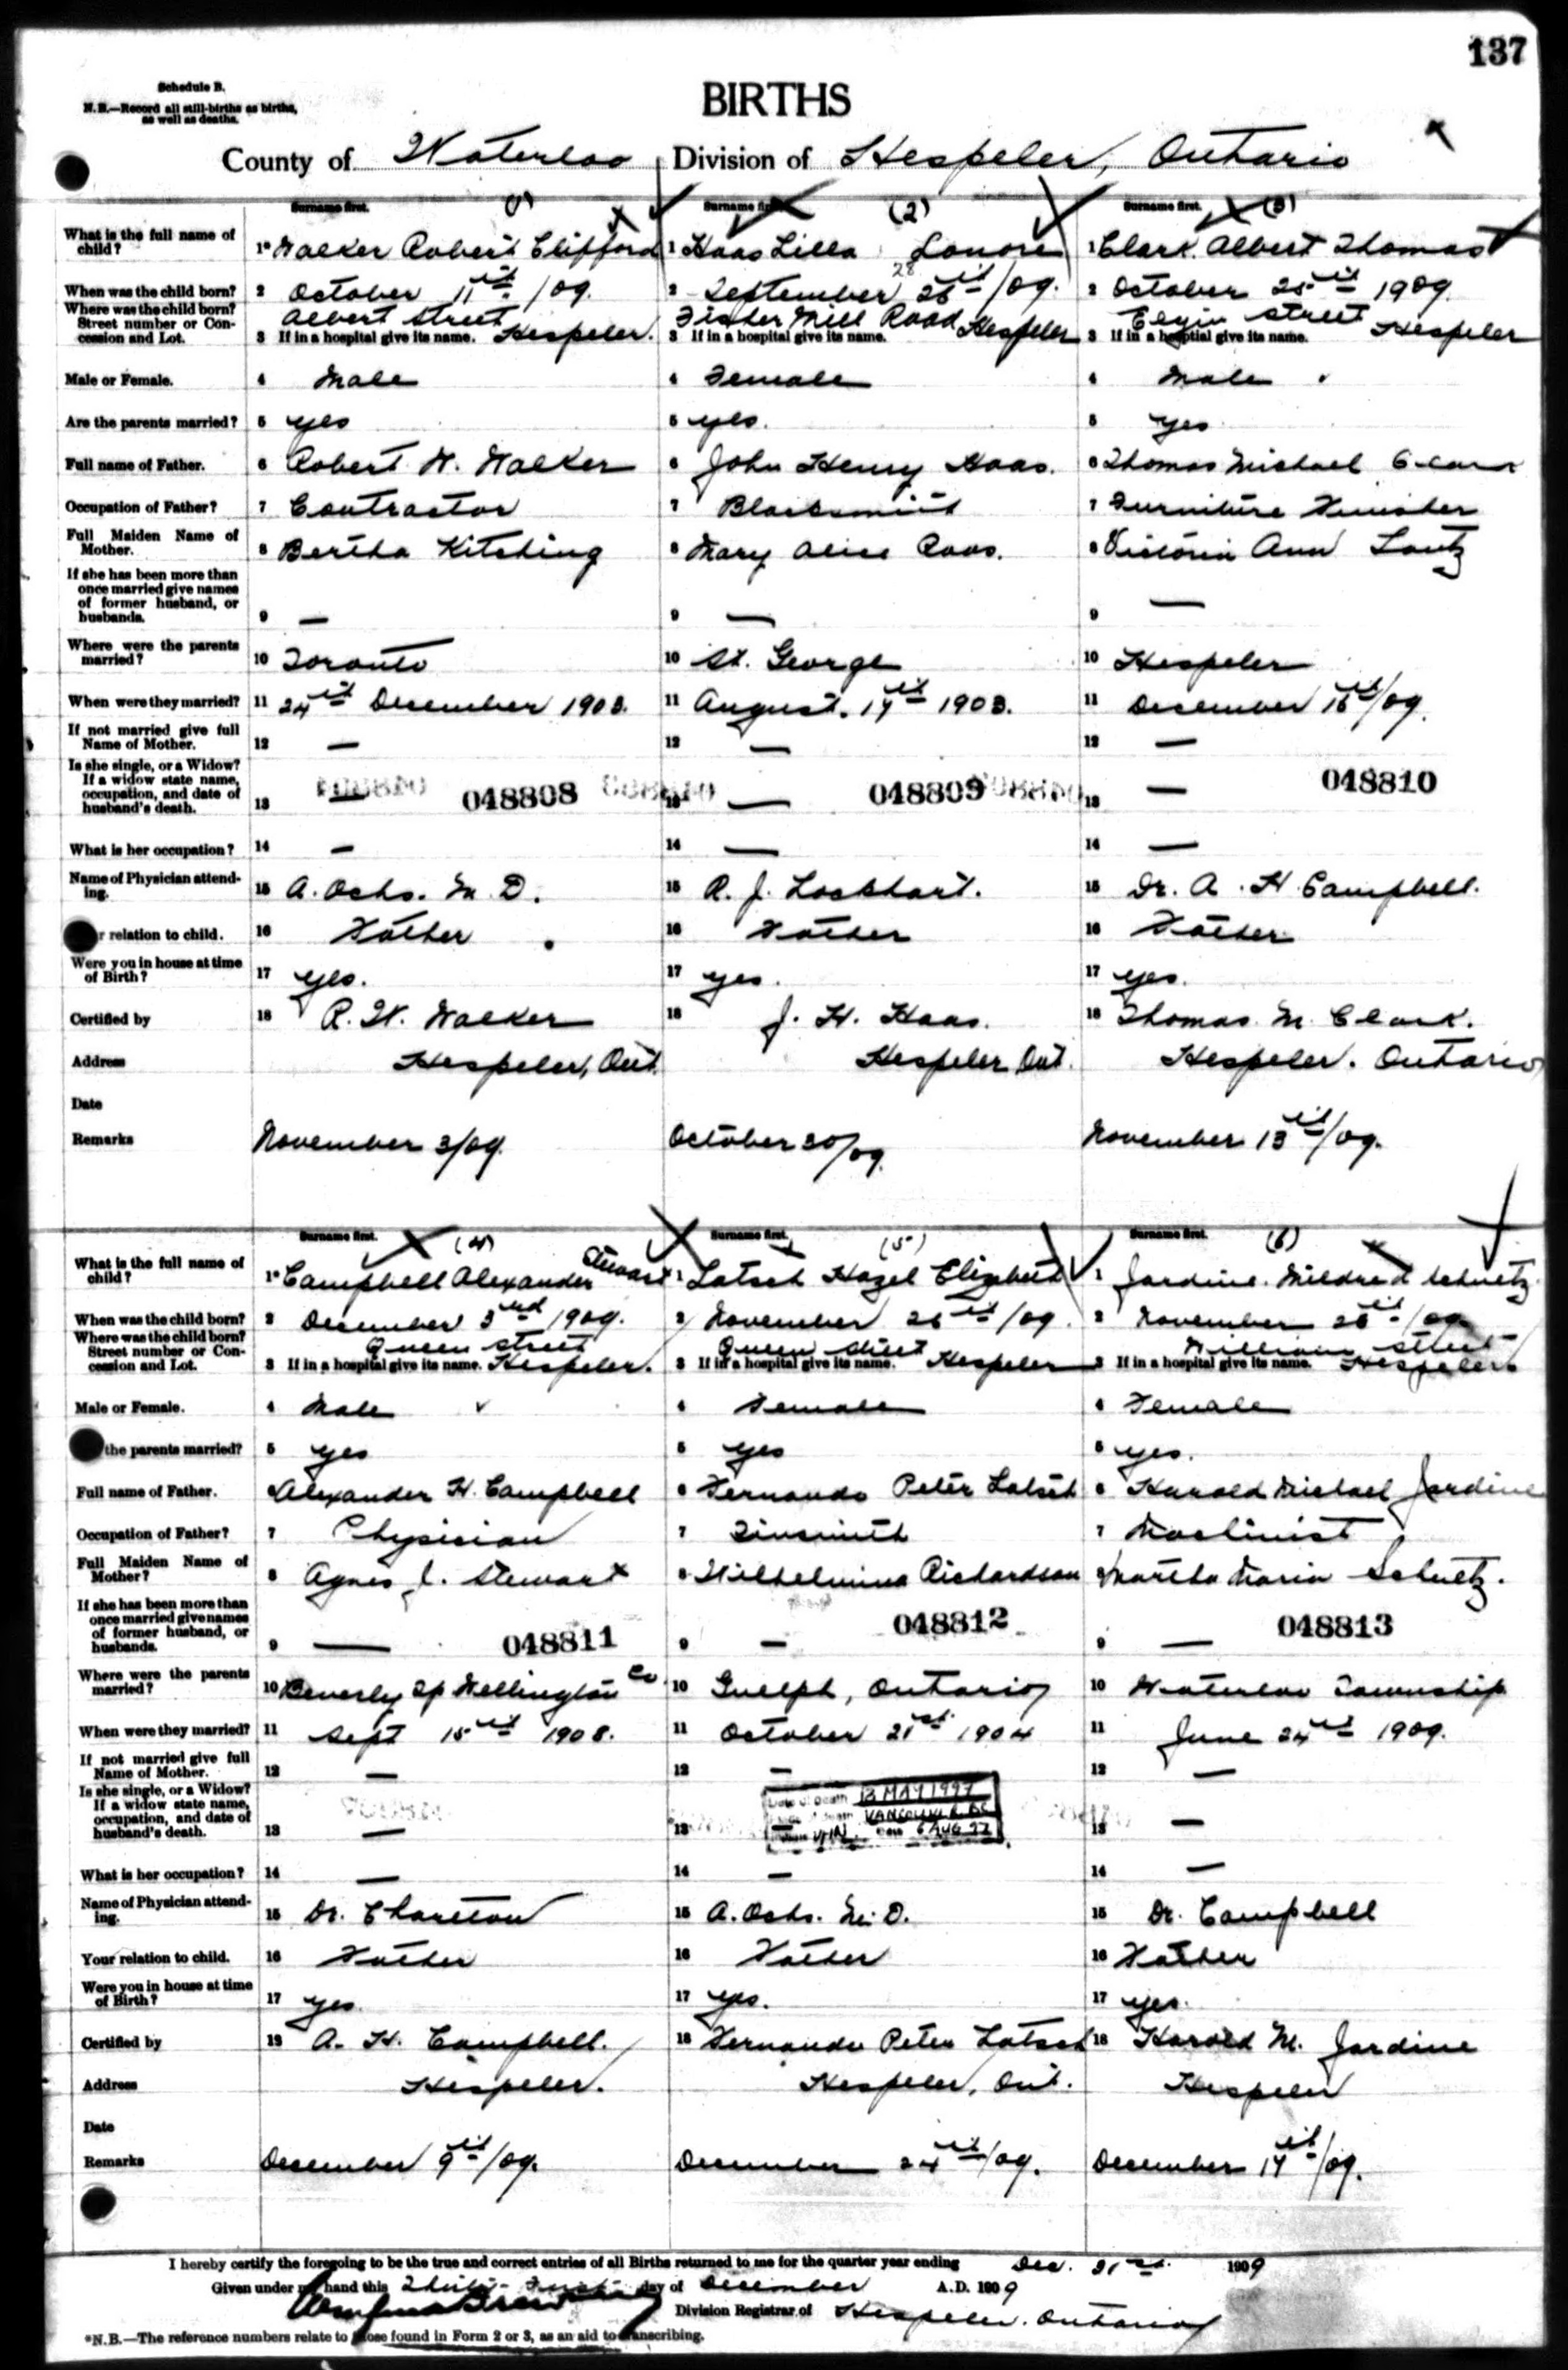 137
Schedule B.
N.B.—Record all still-births as births, as well as deaths.
BIRTHS
County of Waterloo Division of Hespeler, Ontario
Surname first. (1) Surname first. (2) Surname first. (3)
What is the full name of child? 1* Walker Robert Clifford 1 Haas Lilla Lonore 1 Clark. Albert Thomas
When was the child born? 2 October 11th /09. 2 September 28 26th /09. 2 October 25th 1909
Where was the child born? Street number or Concession and Lot. Albert Street Fisher Mill Road Elgin Street
3 If in a hospital give its name. Hespeler. 3 If in a hospital give its name. Hespeler 3 If in a hospital give its name. Hespeler
Male or Female. 4 Male 4 Female 4 Male
Are the parents married? 5 yes 5 yes. 5 yes
Full name of Father. 6 Robert W. Walker 6 John Henry Haas. 6 Thomas Michael Clark
Occupation of Father? 7 Contractor 7 Blacksmith 7 Furniture Finisher
Full Maiden Name of Mother. 8 Bertha Kitching 8 Mary Alice Roos. 8 Victoria Ann Lantz
If she has been more than once married give names of former husband, or husbands. 9 — 9 — 9 —
Where were the parents married? 10 Toronto 10 St. George 10 Hespeler
When were they married? 11 24th December 1903. 11 August. 19th 1903. 11 December 16th/09.
If not married give full Name of Mother. 12 — 12 — 12 —
Is she single, or a Widow? If a widow state name, occupation, and date of husband's death. 13 — 048808 13 — 048809 13 — 048810
What is her occupation? 14 — 14 — 14 —
Name of Physician attending. 15 A. Ochs. M.D. 15 R. J. Lockhart. 15 Dr. A. H. Campbell.
r relation to child. 16 Father 16 Father 16 Father
Were you in house at time of Birth? 17 yes. 17 yes. 17 yes.
Certified by 18 R. W. Walker 18 J. H. Haas. 18 Thomas M. Clark.
Address Hespeler, Ont. Hespeler Ont. Hespeler. Ontario
Date
Remarks November 3/09. October 30/09. November 13th/09.
Surname first. (4) Surname first. (5) Surname first. (6)
What is the full name of child? 1* Campbell Alexander Stewart 1 Latsch Hazel Elizabeth 1 Jardine. Mildred Schultz
When was the child born? 2 December 3rd 1909. 2 November 26th /09. 2 November 26th /09
Where was the child born? Street number or Concession and Lot. Queen Street Queen Street William Street
3 If in a hospital give its name. Hespeler. 3 If in a hospital give its name. Hespeler 3 If in a hospital give its name. Hespeler
Male or Female. 4 Male 4 Female 4 Female
the parents married? 5 yes 5 yes 5 yes.
Full name of Father. 6 Alexander H. Campbell 6 Fernando Peter Latsch 6 Harold Michael Jardine
Occupation of Father? 7 Physician 7 Tinsmith 7 Machinist
Full Maiden Name of Mother? 8 Agnes J. Stewart 8 Wilhelmina Richardson 8 Martha Maria Schultz.
If she has been more than once married give names of former husband, or husbands. 9 — 048811 9 — 048812 9 — 048813
Where were the parents married? 10 Beverly Tp Wellington Co 10 Guelph, Ontario 10 Waterloo Township
When were they married? 11 Sept 15th 1908. 11 October 21st 1904 11 June 24th 1909.
If not married give full Name of Mother. 12 — 12 — 12 —
Is she single, or a Widow? If a widow state name, occupation, and date of husband's death. 13 — 13 — 13 —
Date of Death 13 MAY 1997
VANCOUVER BC
Date 6 AUG 97
What is her occupation? 14 — 14 — 14 —
Name of Physician attending. 15 Dr. Charlton 15 A. Ochs. M.D. 15 Dr. Campbell
Your relation to child. 16 Father 16 Father 16 Father
Were you in house at time of Birth? 17 yes 17 yes. 17 yes.
Certified by 18 A. H. Campbell. 18 Fernando Peter Latsch 18 Harold M. Jardine
Address Hespeler. Hespeler, Ont. Hespeler
Date
Remarks December 9th/09. December 24th/09. December 14th/09.
I hereby certify the foregoing to be the true and correct entries of all Births returned to me for the quarter year ending Dec. 31st. 1909
Given under my hand this Thirty-First day of December A.D. 1909
Division Registrar of Hespeler. Ontario
*N.B.—The reference numbers relate to those found in Form 2 or 3, as an aid to transcribing.